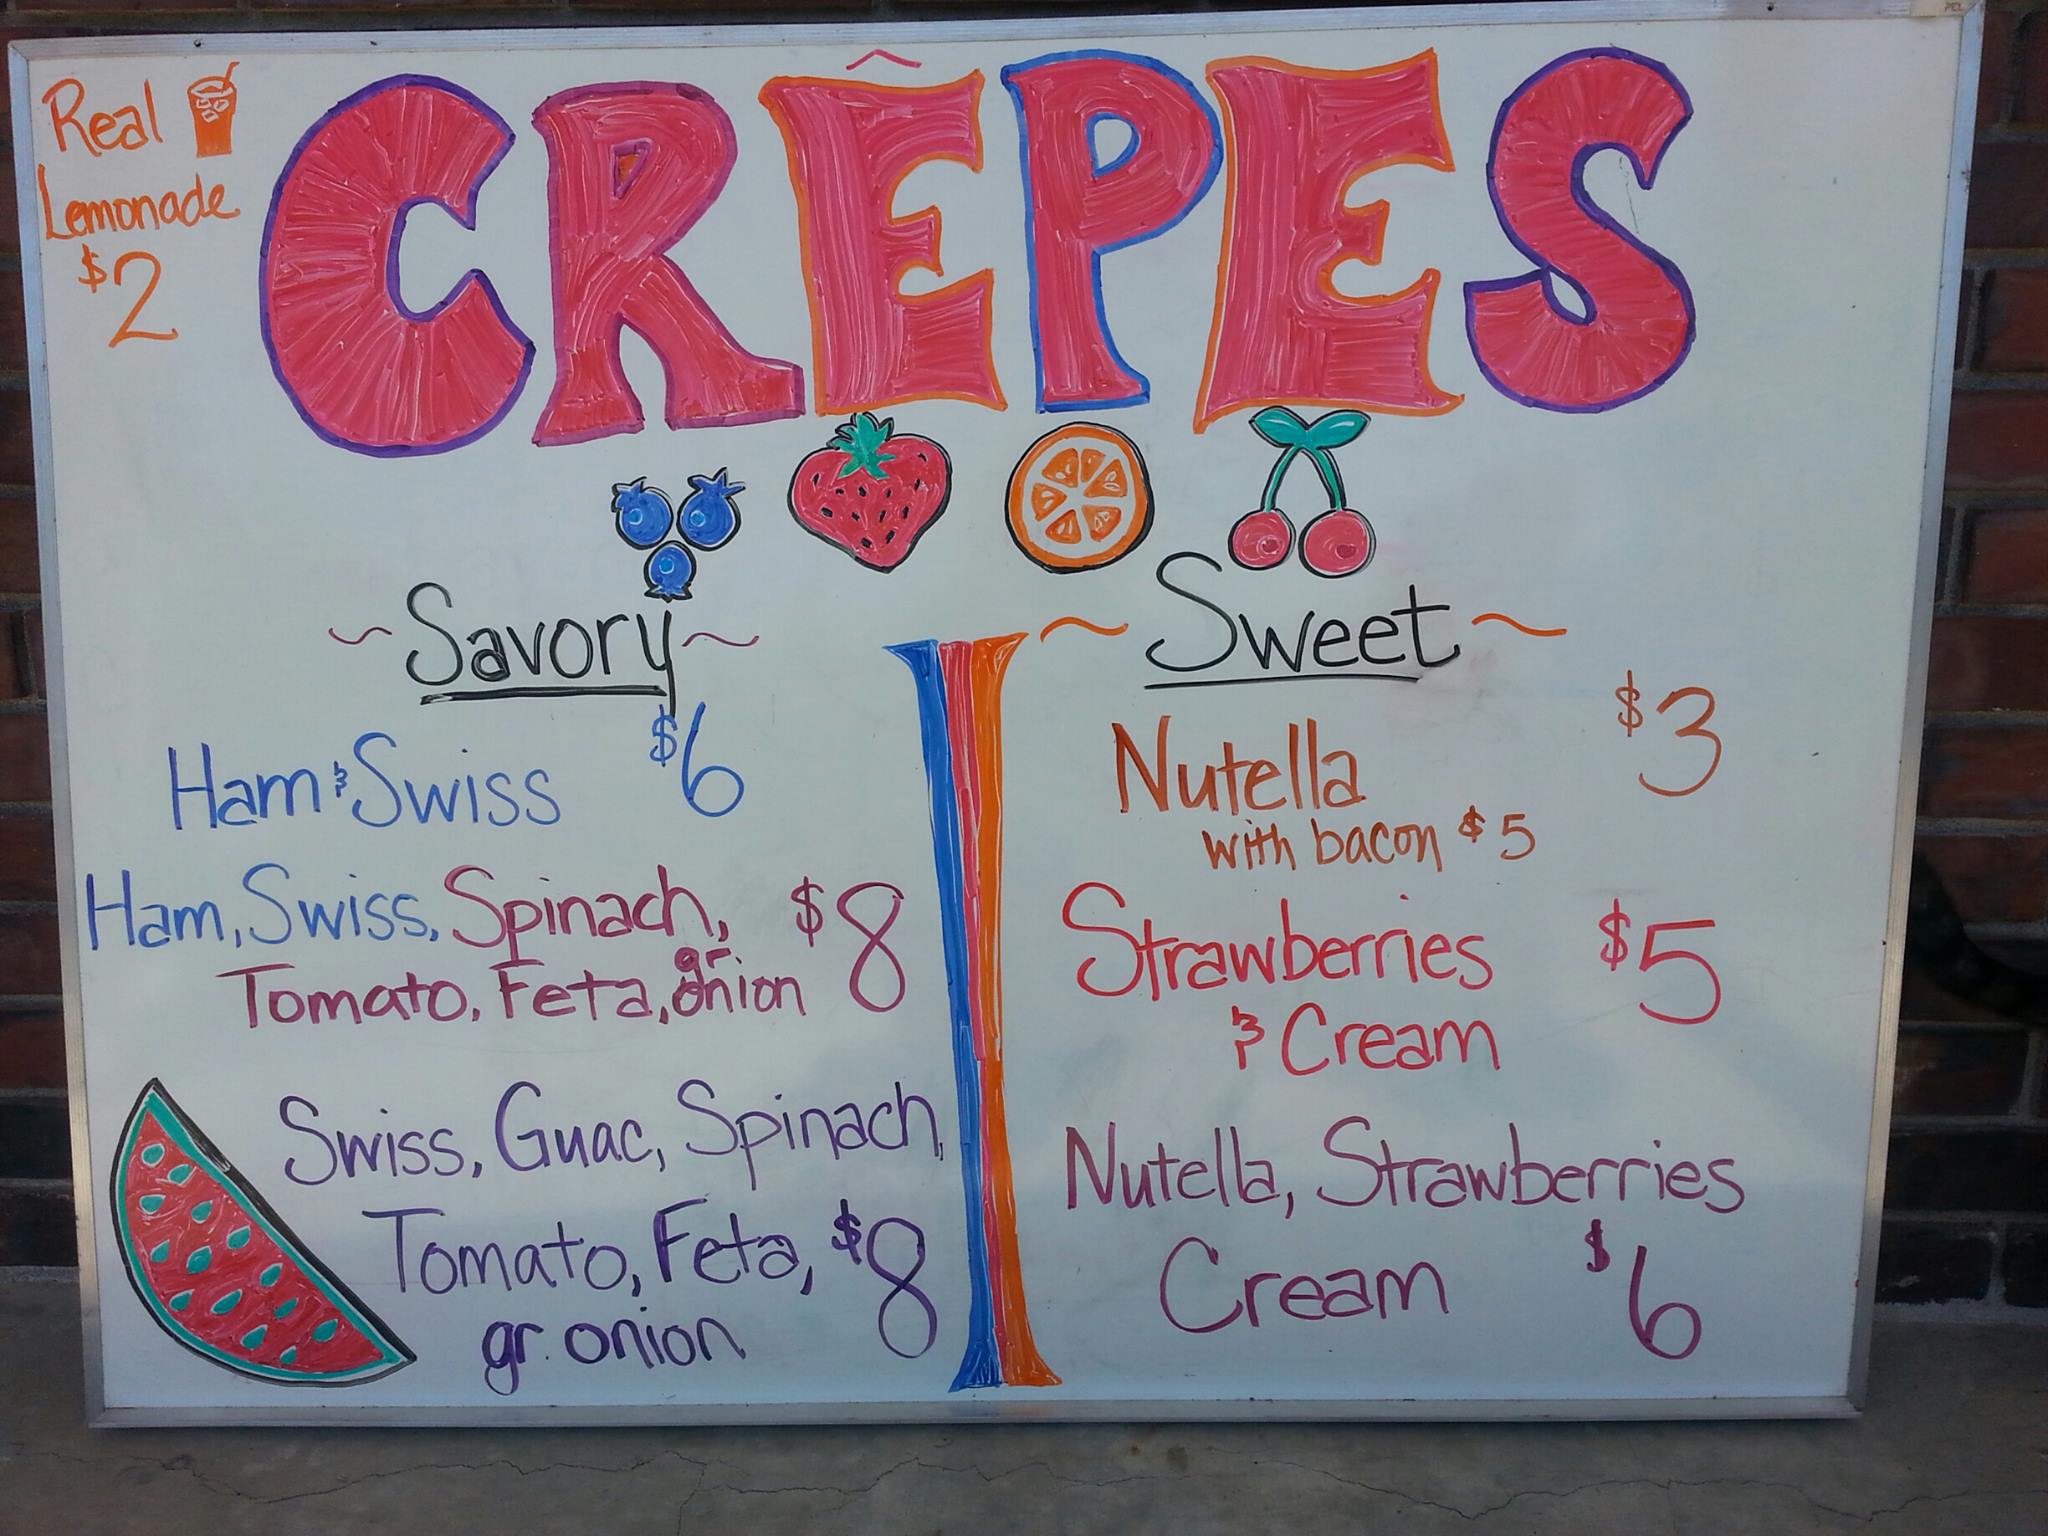 Real
Lemonade
$2
CRÊPES
~Savory~
Ham & Swiss $6
Ham, Swiss, Spinach, $8
Tomato, Feta, gr. onion
Swiss, Guac, Spinach,
Tomato, Feta, $8
gr. onion
~Sweet~
Nutella $3
with bacon $5
Strawberries $5
& Cream
Nutella, Strawberries
Cream $6